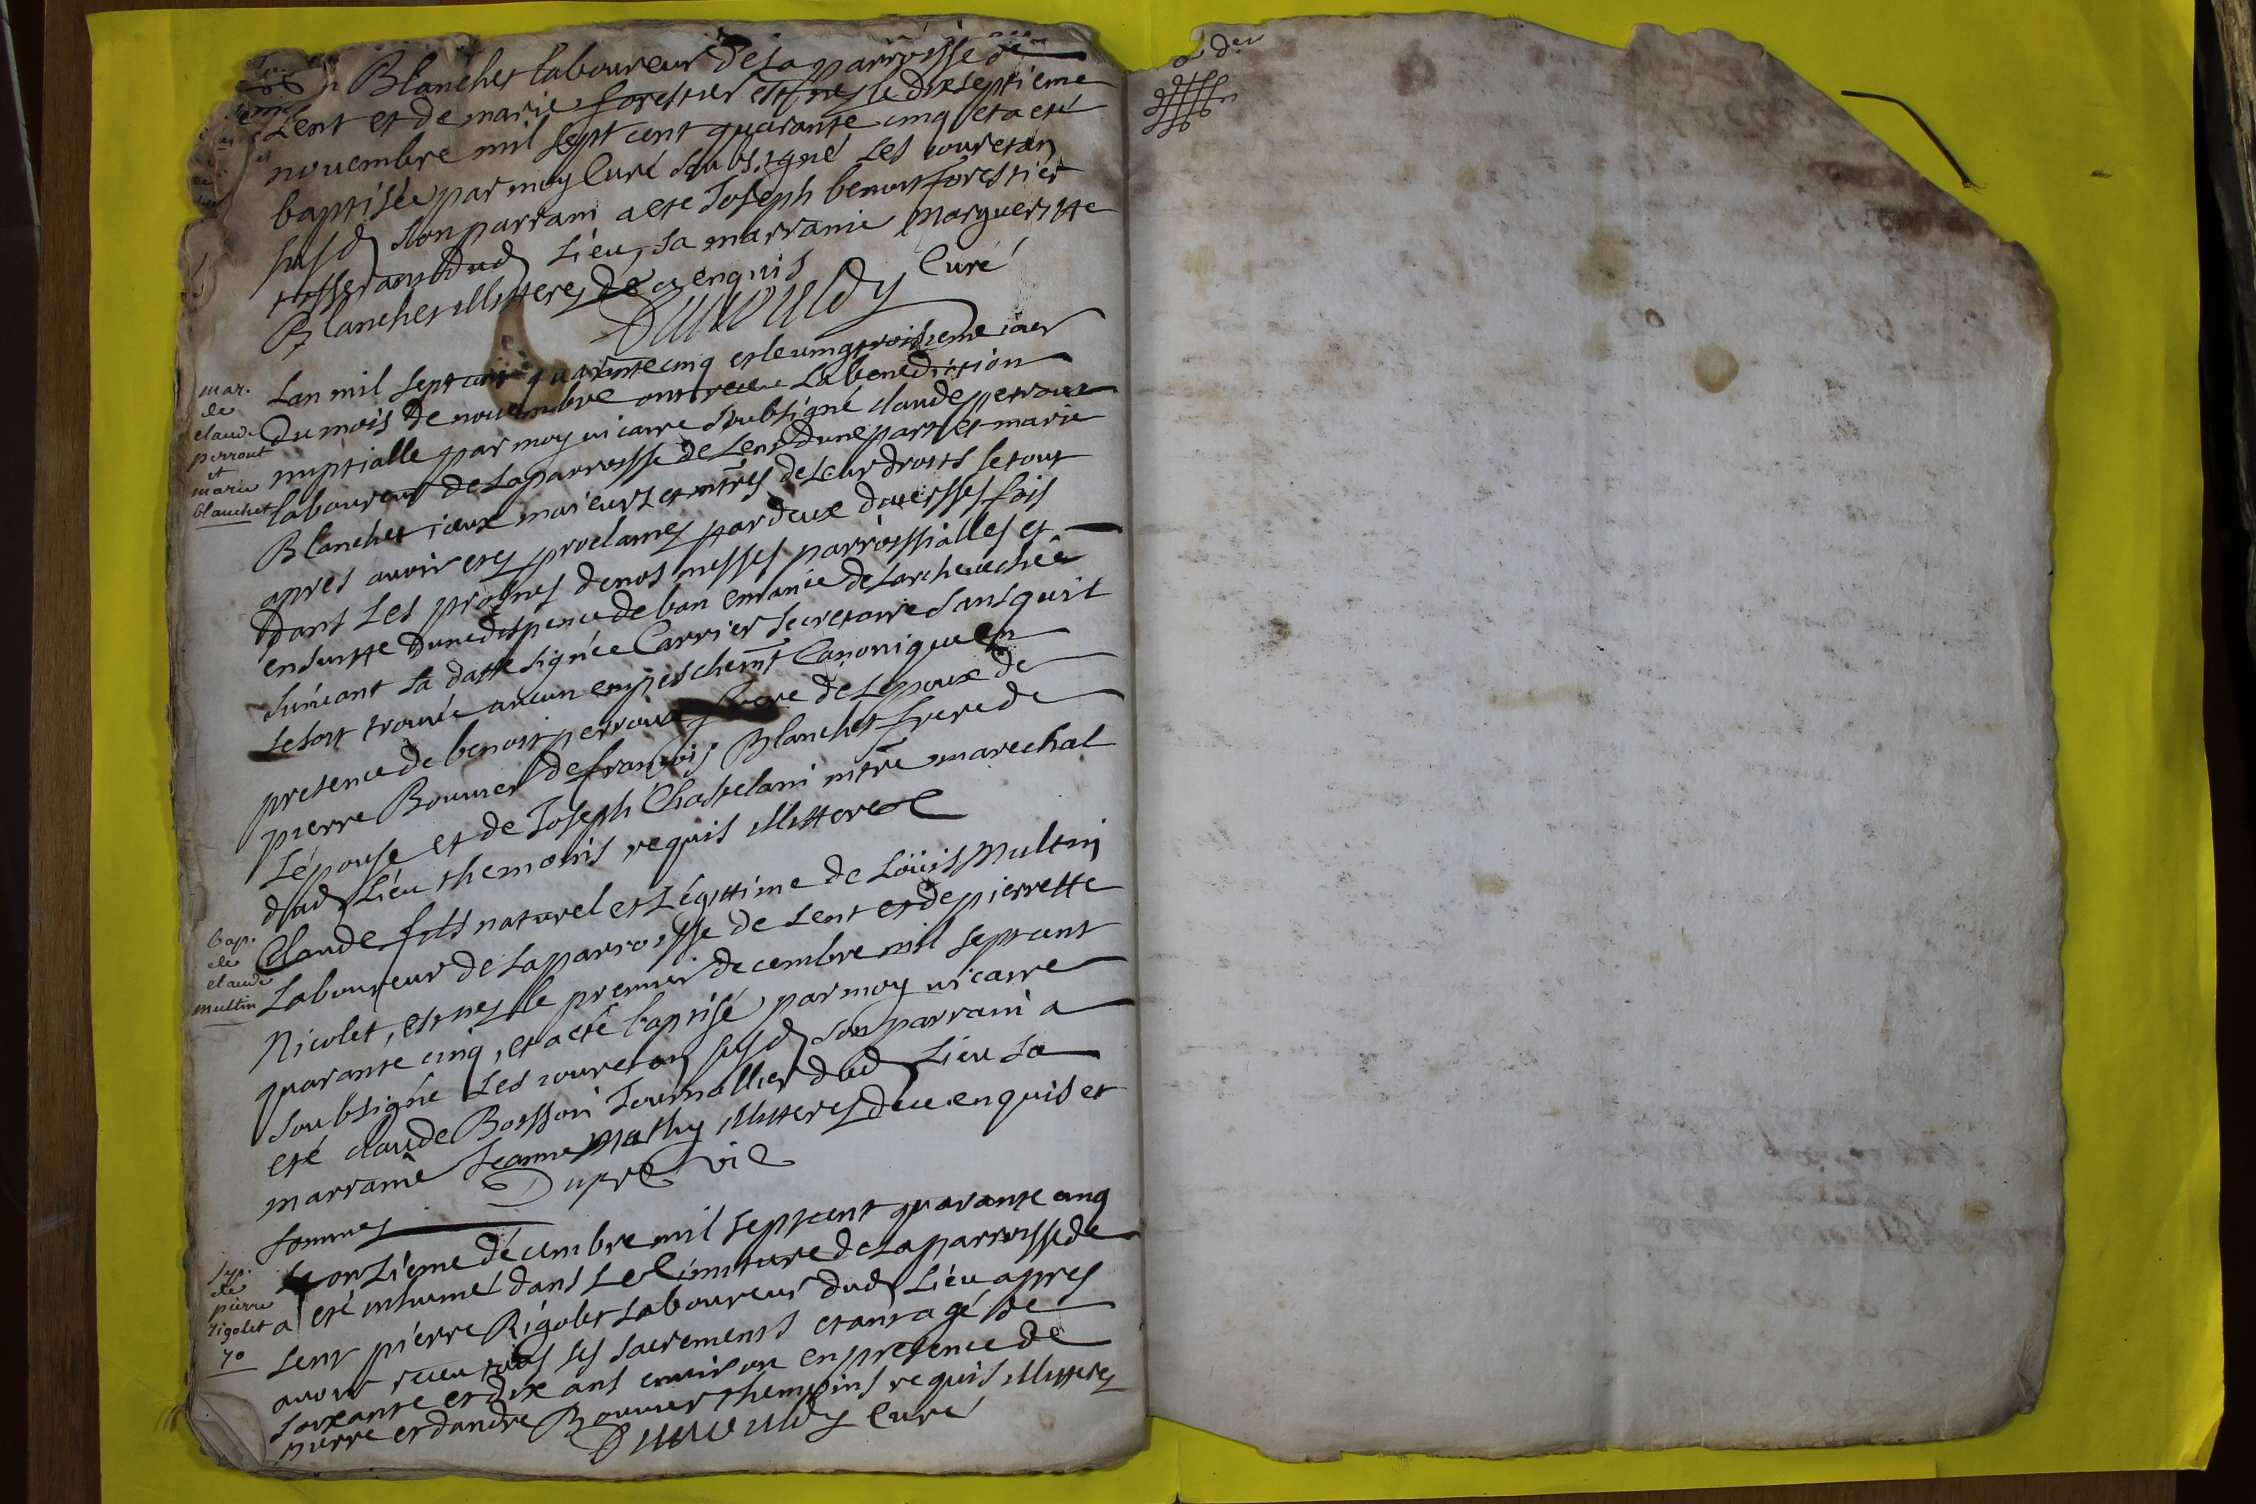 Blanchet laboureur de la parroisse de
Lent et de marie forestier est nez le dixseptieme
novembre mil sept cent quarante cinq et a eté
baptisée par moy Curé soubsigné les jour et an
susd son parrain a ete Joseph benoit forestier
tisserand dud Lieu, sa marraine Margueritte
Blanchet illitterez de ce enquis
Curé
mar.
de
claude
perrout
et
marie
blanchet
Lan mil sept cent quarante cinq et le vingt troisieme jour
du mois de novembre ont receu la benediction
nuptialle par moy vicaire soubsigné claude perroux
laboureur de la parroisse de Lent dune part et marie
Blanchet jeux majeurs et mtres de leur droits le tout
apres avoir etez proclamez par deux diversses fois
dans les prosnes de nos messes parroissialles et
ensuitte dune dispence de ban emanie de larchevechée
suivant sa datte signée Carrier secretaire sans quil
se soit trouvée aucun empeschemt Canonique en
presence de benoit perroux frere de Lepoux de
pierre Bouvier de françois Blanchet frere de
Lépouse et de Joseph Chastelain mtre marechal
dud Lieu themoins requis illitterez
bap.
de
claude
multin
Claude fils naturel et Légittime de Loüis Multin
Laboureur de la parroisse de Lent et de pierrette
Nicolet, est nez le premier decembre mil sept cent
quarante cinq, et a eté baptisé par moy vicaire
soubsigné Les jour et an susd son parrain a
eté claude Boisson Journallier dud Lieu sa
marraine Jeanne Mathy illitterez de ce enquis et
sommez
Dupre vic
sep.
de
pierre
rigolet
70
Le onzième décembre mil sept cent quarante cinq
a eté inhumé dans le Cimiture de la parroisse de
Lent pierre Rigolet Laboureur dud Lieu apres
avoir receu tous ses sacrements etant agé de
soixante et dix ans environ en presence de
pierre et dandre Bouvier themoins requis illitterez
Curé